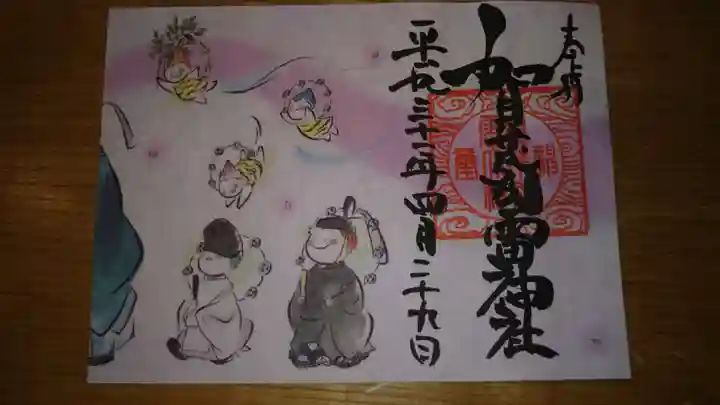 奉拝
賀茂別雷神社
平成三十一年四月二十九日